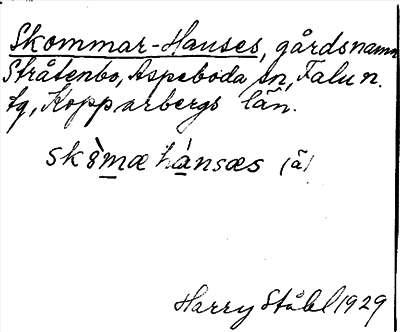 Skommar-Hanses, gårdsnamn
Stråtenbo, Aspeboda sn, Falu n.
tg, Kopparbergs län.
sk8̀mæ hánsæs (ä)
Harry Ståhl 1929